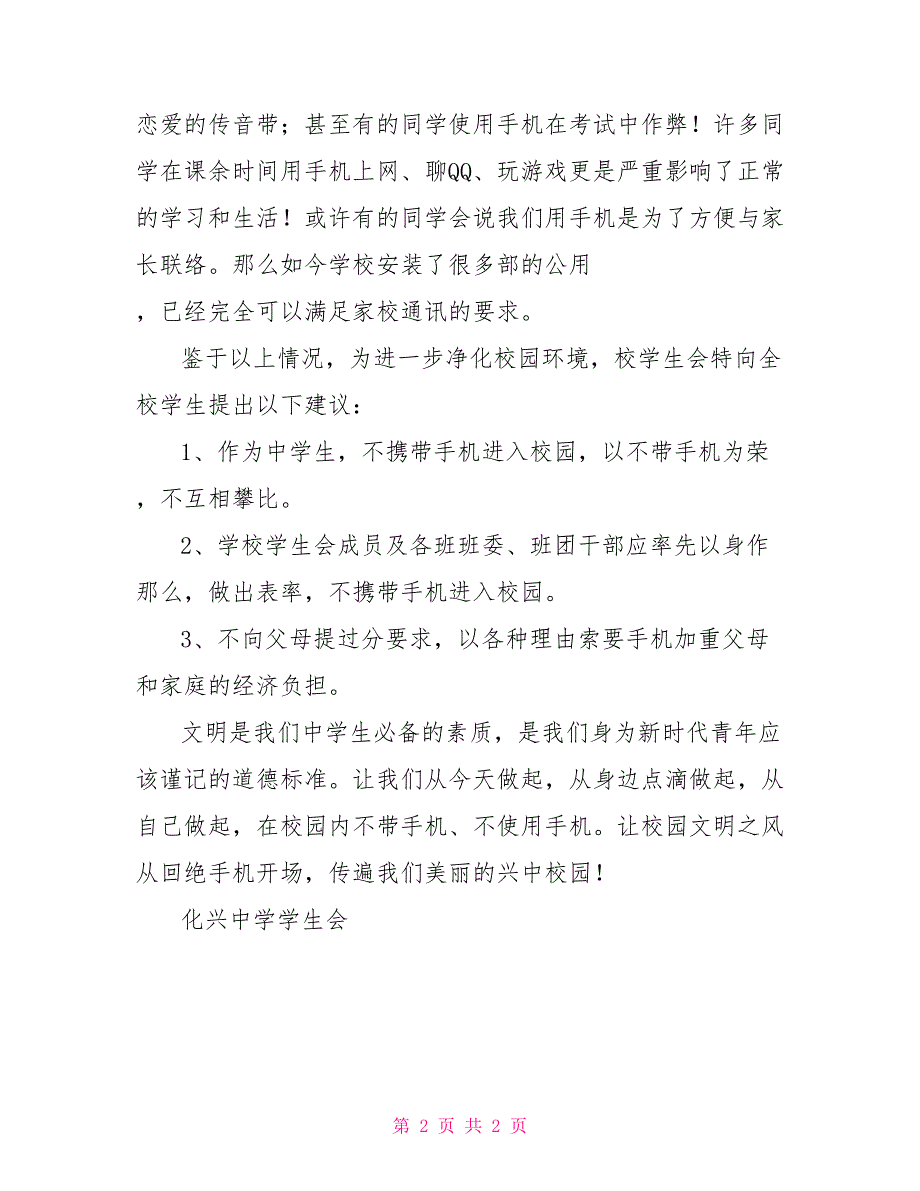 恋爱的传音带；甚至有的同学使用手机在考试中作弊！许多同
学在课余时间用手机上网、聊QQ、玩游戏更是严重影响了正常
的学习和生活！或许有的同学会说我们用手机是为了方便与家
长联络。那么如今学校安装了很多部的公用
，已经完全可以满足家校通讯的要求。
鉴于以上情况，为进一步净化校园环境，校学生会特向全
校学生提出以下建议：
1、作为中学生，不携带手机进入校园，以不带手机为荣
，不互相攀比。
2、学校学生会成员及各班班委、班团干部应率先以身作
那么，做出表率，不携带手机进入校园。
3、不向父母提过分要求，以各种理由索要手机加重父母
和家庭的经济负担。
文明是我们中学生必备的素质，是我们身为新时代青年应
该谨记的道德标准。让我们从今天做起，从身边点滴做起，从
自己做起，在校园内不带手机、不使用手机。让校园文明之风
从回绝手机开场，传遍我们美丽的兴中校园！
化兴中学学生会
第 2 页 共 2 页